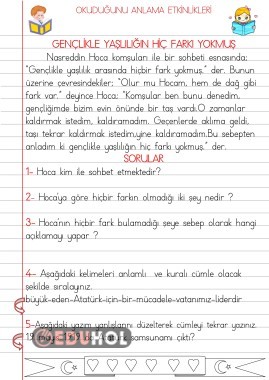 OKUDUĞUNU ANLAMA ETKİNLİKLERİ
GENÇLİKLE YAŞLILIĞIN HİÇ FARKI YOKMUŞ
Nasreddin Hoca komşuları ile bir sohbeti esnasında;
"Gençlikle yaşlılık arasında hiçbir fark yokmuş." der. Bunun
üzerine çevresindekiler; "Olur mu Hocam, hem de dağ gibi
fark var." deyince Hoca; "Komşular ben bunu denedim,
gençliğimde bizim evin önünde bir taş vardı.O zamanlar
kaldırmak istedim, kaldıramadım. Geçenlerde aklıma geldi,
taşı tekrar kaldırmak istedim,yine kaldıramadım.Bu sebepten
anladım ki gençlikle yaşlılığın hiç farkı yokmuş." der.
SORULAR
1- Hoca kim ile sohbet etmektedir?
2- Hoca'ya göre hiçbir farkın olmadığı iki şey nedir ?
3- Hoca'nın hiçbir fark bulamadığı şeye sebep olarak hangi
açıklamayı yapar ?
4- Aşağıdaki kelimeleri anlamlı ve kurallı cümle olacak
şekilde sıralayınız.
büyük-eden-Atatürk-için-bir-mücadele-vatanımız-liderdir
5-Aşağıdaki yazım yanlışlarını düzelterek cümleyi tekrar yazınız.
Atatürk samsunamı çıktı?
EDUHOL